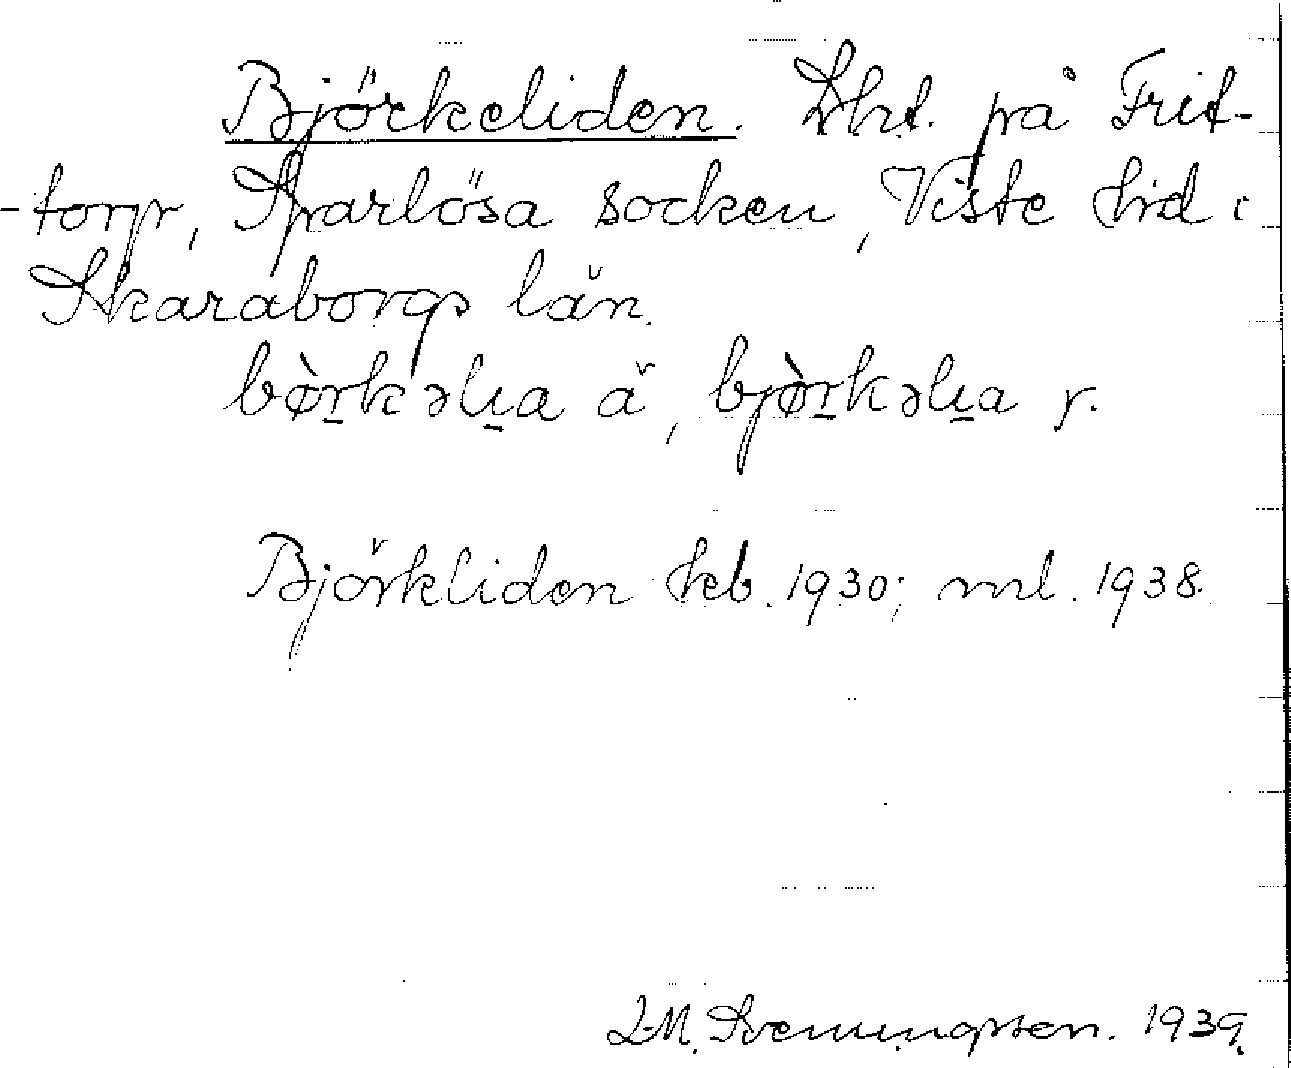 Björkeliden. Lht. på Frit-
-torp, Sparlösa socken, Viste hd i
Skaraborgs län.
bø̀rkəlia ä, bjø̀rkəlia y.
Björkliden kb. 1930; ml. 1938.
Svenningsson. 1939.